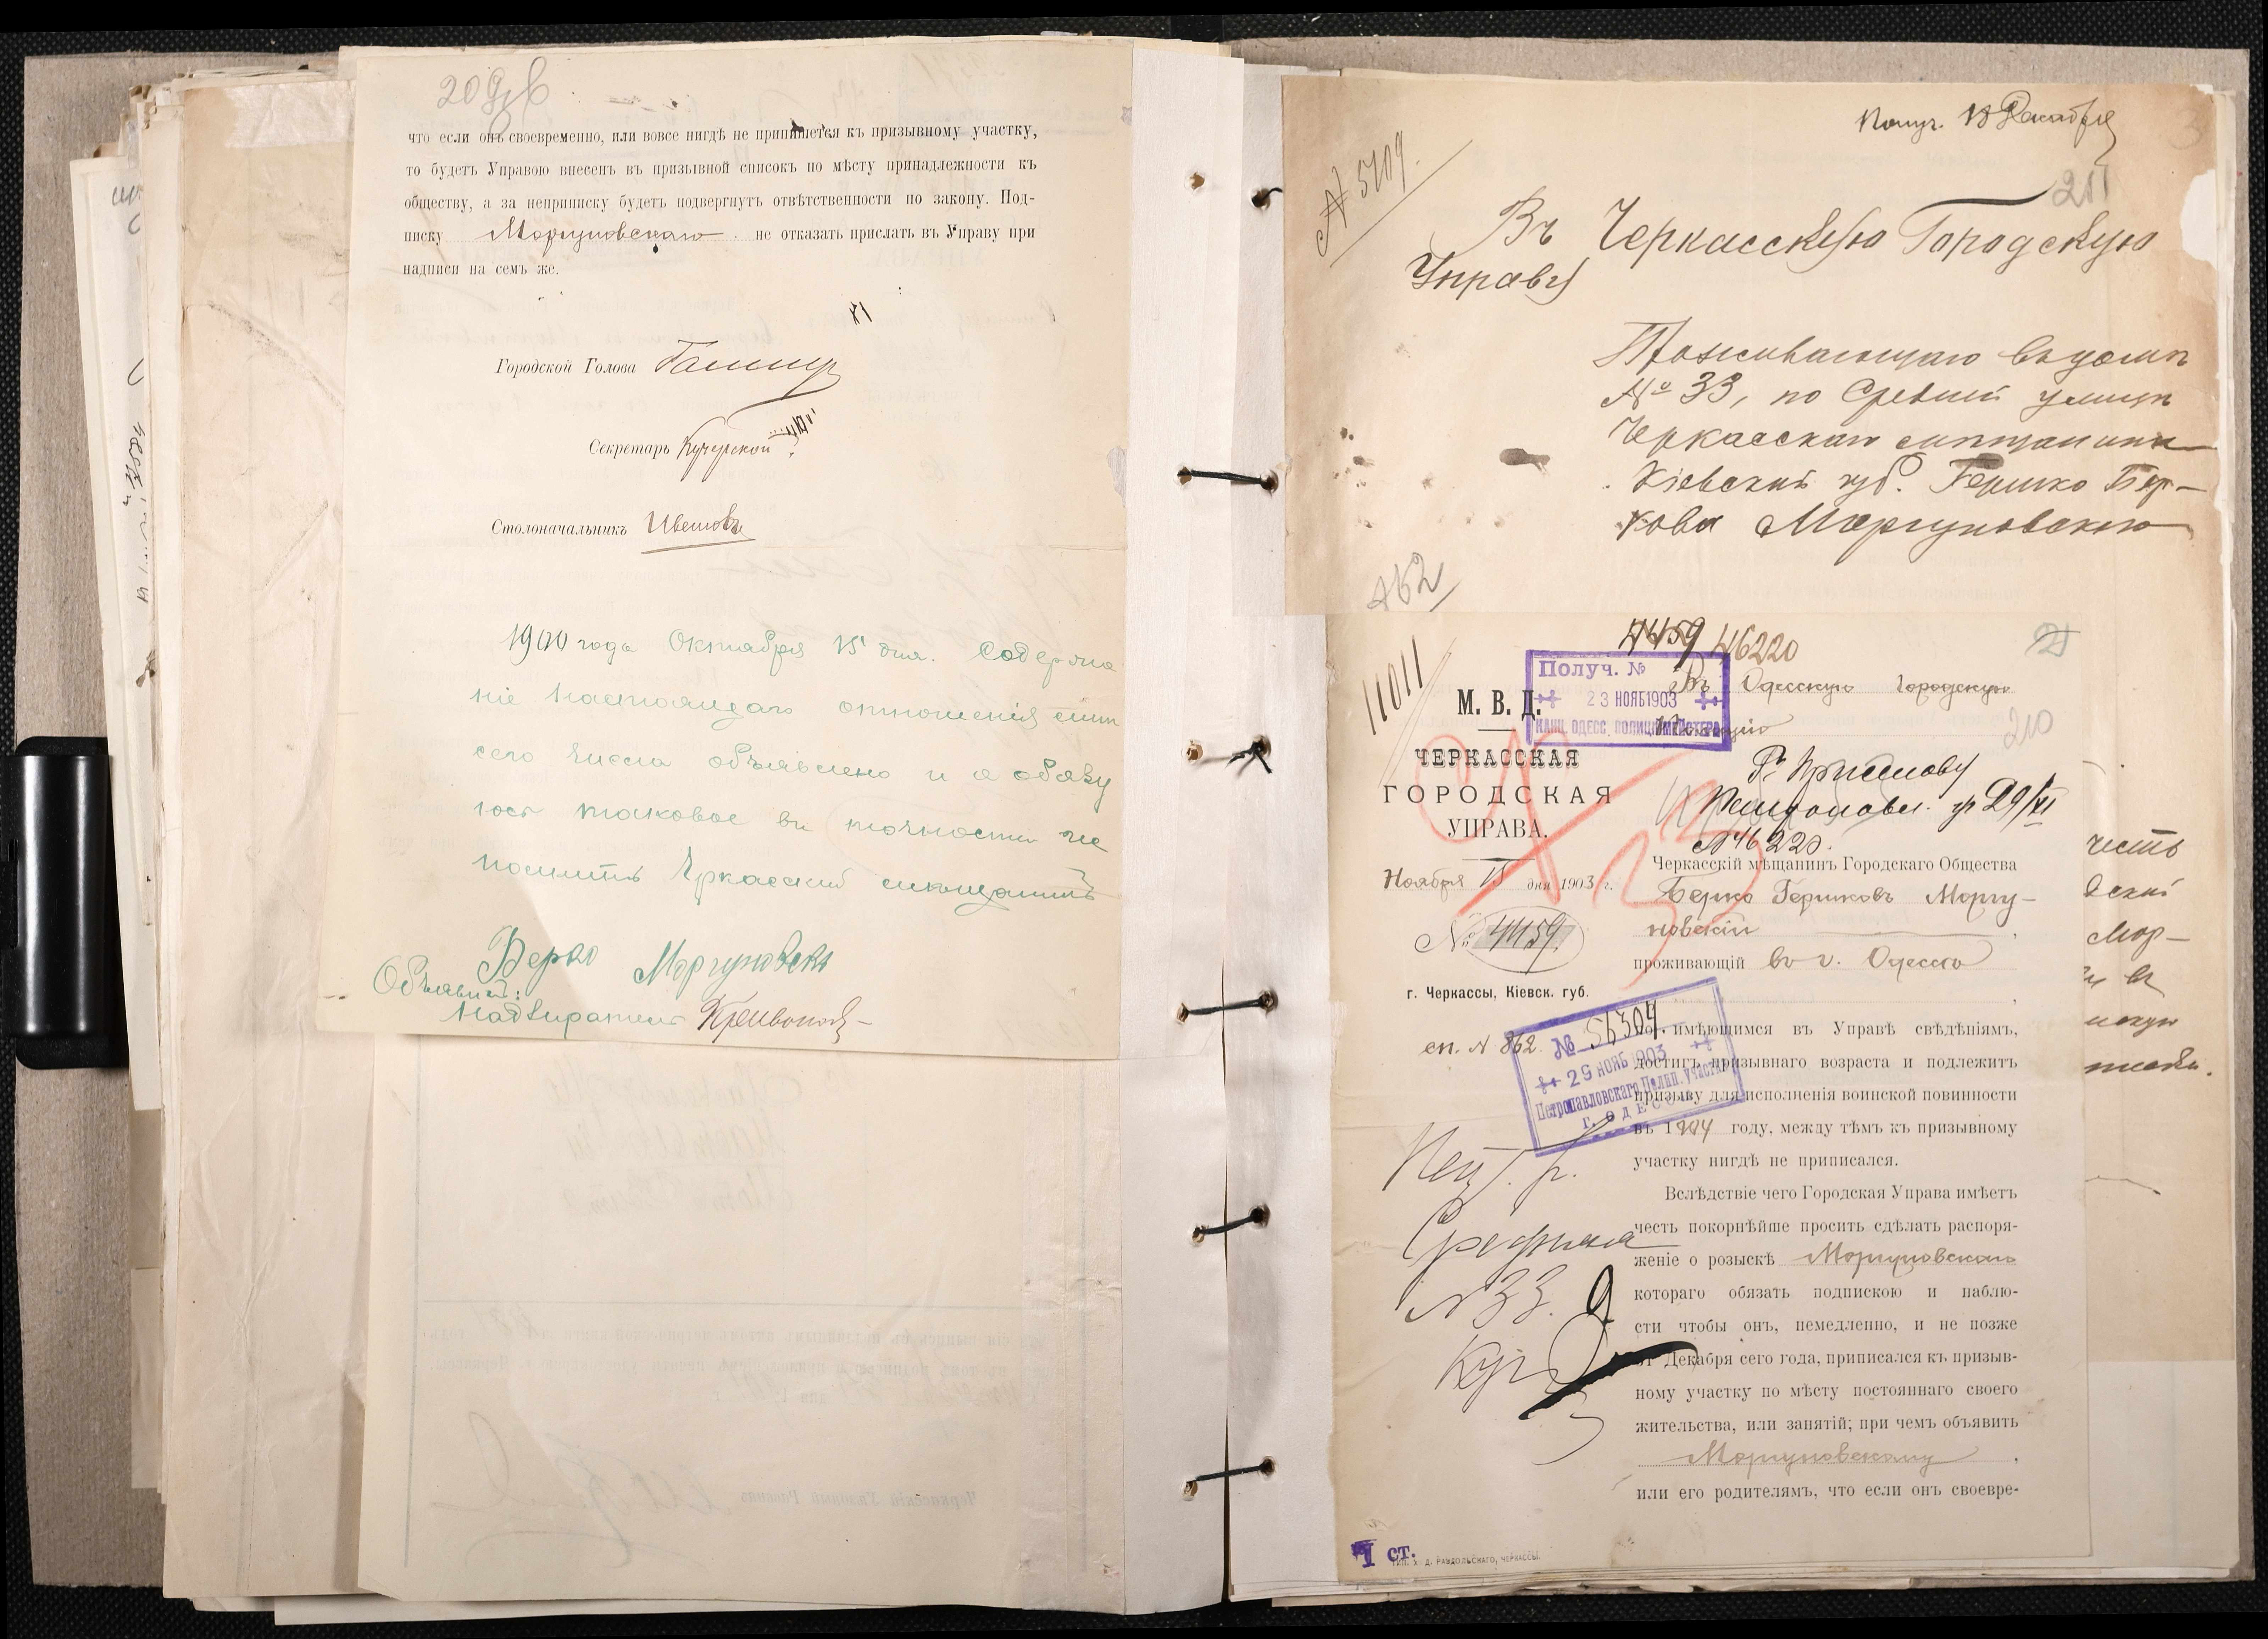 20
что если онъ своевременно, или вовсе нигдѣ не припишется къ призывному участку,
то будетъ Управою внесенъ въ призывной списокъ по мѣсту принадлежности къ
обществу, а за неприписку будетъ подвергнутъ отвѣтственности по закону. Под-
писку Моргуновскаго не отказать прислать въ Управу при
надписи на семъ же.
Городской Голова
Секретарь
Столоначальникъ
года Октября 15 дня. Содержа
ніе настоящаго отношенія мнѣ
сего числа объявлено и я обязу
юсь таковое въ точности ис
полнить Черкасскій мѣщанинъ
Берко Моргуновскі
Объявилъ:
Надзиратель
Получ. 18 Декабря
211
№ 5709.
Въ Черкасскую Городскую
Управу
Проживающаго въ домѣ
№ 33, по Средней улицѣ
Черкасскаго мѣщанина
Кіевской губ. Гершко Бер-
кова Моргуновскаго
862
4459 46220
21
11011
Получ. №
23 НОЯБ 1903
КАНЦ. ОДЕСС. ПОЛИЦІЙМЕЙСТЕРА
Въ Одесскую Городскую
Полицію
210
М. В. Д.
ЧЕРКАССКАЯ
ГОРОДСКАЯ
УПРАВА.
Г. Приставу
Петропавл. уч 29/XI
№ 46220.
Ноября 15 дня 1903 г.
№ 4459.
г. Черкассы, Кіевск. губ.
сп. № 862.
Черкасскій мѣщанинъ Городскаго Общества
Берко Гершковъ Моргу-
новскій
проживающій въ г. Одессѣ
№ 56304
29 НОЯБ 1903
Петропавловскаго Полиц. участка
г. ОДЕССЫ
по имѣющимся въ Управѣ свѣдѣніямъ,
достигъ призывнаго возраста и подлежитъ
призыву для исполненія воинской повинности
въ 1904 году, между тѣмъ къ призывному
участку нигдѣ не приписался.
Вслѣдствіе чего Городская Управа имѣетъ
честь покорнѣйше просить сдѣлать распоря-
женіе о розыскѣ Моргуновскаго
котораго обязать подпискою и наблю-
сти чтобы онъ, немедленно, и не позже
31 Декабря сего года, приписался къ призыв-
ному участку по мѣсту постояннаго своего
жительства, или занятій; при чемъ объявить
Моргуновскому
или его родителямъ, что если онъ своевре-
Средняя
№ 33.
I ст.
ТИП. Х. Д. РАЗДОЛЬСКАГО, ЧЕРКАССЫ.
честь
Мор-